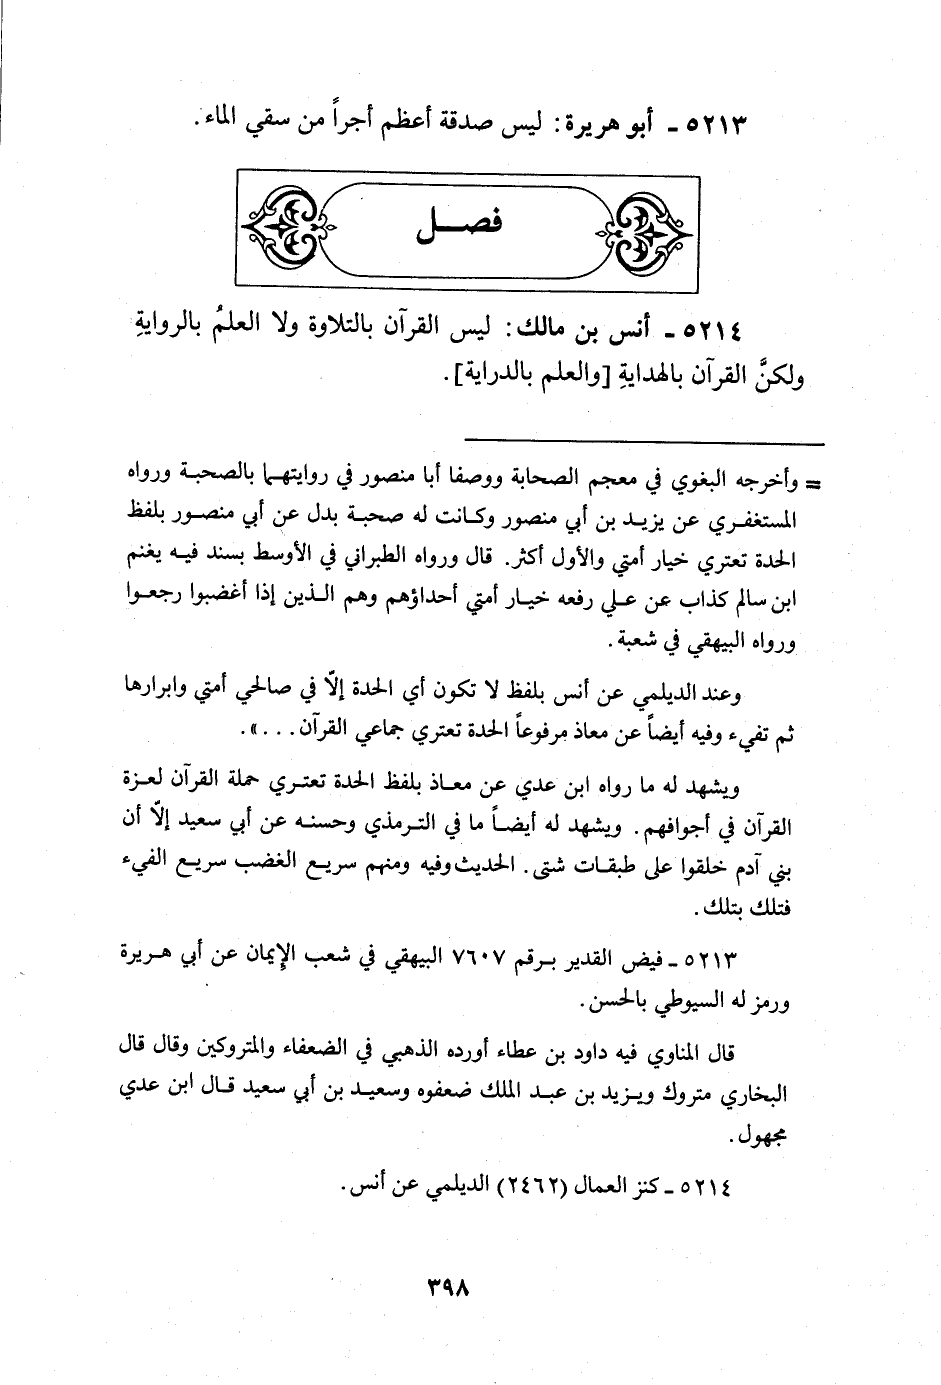 ٥٢١٣ - أبو هريرة: ليس صدقة أعظم أجراً من سقي الماء.
فصـــل
٥٢١٤ - أنس بن مالك: ليس القرآن بالتلاوة ولا العلمُ بالروايةِ
ولكنَّ القرآن بالهدايةِ [والعلم بالدراية].
= وأخرجه البغوي في معجم الصحابة ووصفا أبا منصور في روايتهما بالصحبة ورواه
المستغفري عن يزيد بن أبي منصور وكانت له صحبة بدل عن أبي منصور بلفظ
الحدة تعتري خيار أمتي والأول أكثر. قال ورواه الطبراني في الأوسط بسند فيه يغنم
ابن سالم كذاب عن علي رفعه خيار أمتي أحداؤهم وهم الذين إذا أغضبوا رجعوا
ورواه البيهقي في شعبة.
وعند الديلمي عن أنس بلفظ لا تكون أي الحدة إلاّ في صالحي أمتي وابرارها
ثم تفيء وفيه أيضاً عن معاذ مرفوعاً الحدة تعتري جماعي القرآن...».
ويشهد له ما رواه ابن عدي عن معاذ بلفظ الحدة تعتري حملة القرآن لعزة
القرآن في أجوافهم. ويشهد له أيضاً ما في الترمذي وحسنه عن أبي سعيد إلاّ أن
بني آدم خلقوا على طبقات شتى. الحديث وفيه ومنهم سريع الغضب سريع الفيء
فتلك بتلك.
٥٢١٣ - فيض القدير برقم ٧٦٠٧ البيهقي في شعب الإيمان عن أبي هريرة
ورمز له السيوطي بالحسن.
قال المناوي فيه داود بن عطاء أورده الذهبي في الضعفاء والمتروكين وقال قال
البخاري متروك ويزيد بن عبد الملك ضعفوه وسعيد بن أبي سعيد قال ابن عدي
مجهول.
٥٢١٤ - كنز العمال (٢٤٦٢) الديلمي عن أنس.
٣٩٨